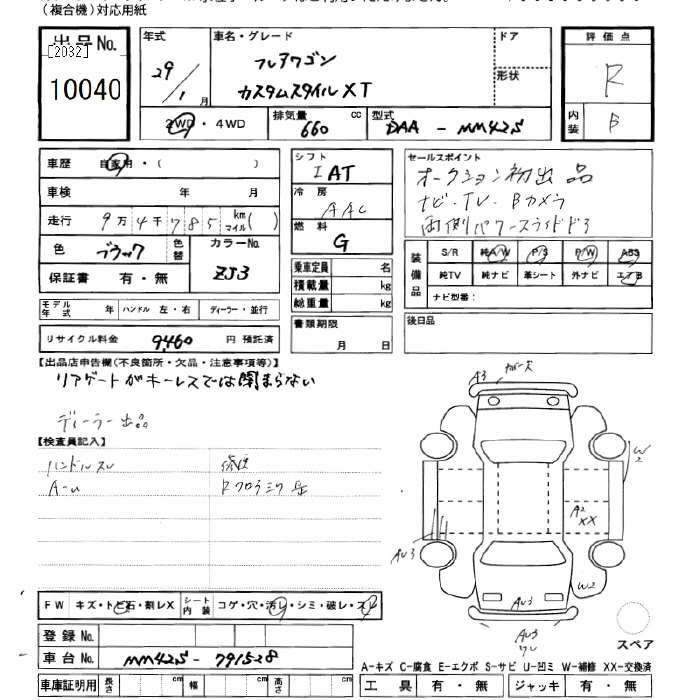 (複合機)対応用紙
出品No.
[2032]
10040
年式
29/1月
車名・グレード
フレアワゴン
カスタムスタイル XT
ドア
形状
評価点
R
内装
B
2WD・4WD
排気量
660 cc
型式
DAA - MM42S
車歴 自家用・( )
車検 年 月
走行 9万4千785 km マイル( )
色 ブラック 色替
カラーNo.
ZJ3
保証書 有・無
シフト
I AT
冷房
AAC
燃料
G
乗車定員 名
積載量 kg
総重量 kg
書類期限
月 日
セールスポイント
オークション初出品
ナビ・TV・Bカメラ
両側パワースライドドア
装備品
S/R 純A/W P/S P/W ABS
純TV 純ナビ 革シート 外ナビ エアB
ナビ型番:
後日品
モデル年式 年 ハンドル 左・右 ディーラー・並行
リサイクル料金 9,460 円 預託済
【出品店申告欄(不良箇所・欠品・注意事項等)】
リアゲートがキーレスでは閉まらない
ディーラー出品
【検査員記入】
ハンドルスレ
A-u
修復
A3
W2
A2
XX
AU3
W2
AU3
AU3
FW キズ・トビ石・割レX シート内装 コゲ・穴・汚レ・シミ・破レ・スレ
登録No.
車台No. MM42S - 791528
車庫証明用 長さ cm 幅 cm 高さ cm
スペア
A-キズ C-腐食 E-エクボ S-サビ U-凹ミ W-補修 XX-交換済
工具 有・無 ジャッキ 有・無